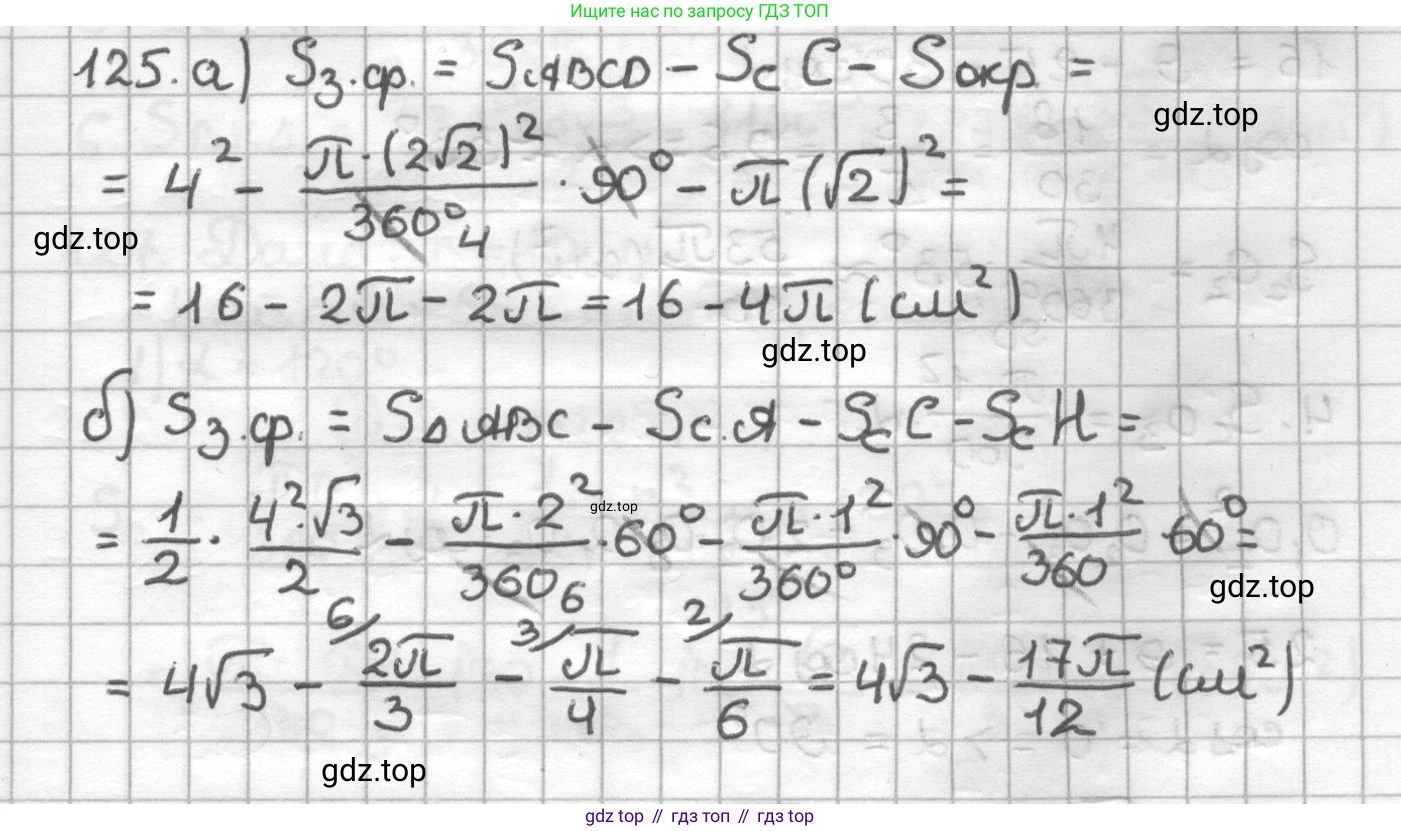 Ищите нас по запросу ГДЗ ТОП
125. а) Sз.ф. = SABCD - Sс C - Sокр =
gdz.top
= 4² - π·(2√2)²/360° 4 · 90° - π(√2)² =
gdz.top
= 16 - 2π - 2π = 16 - 4π (см²)
gdz.top
б) Sз.ф. = S△ABC - Sс.A - Sс C - Sс H =
gdz.top
= 1/2 · 4²·√3/2 - π·2²/360 6 · 60° - π·1²/360° · 90° - π·1²/360 60° =
gdz.top
= 4√3 - 6/ 2π/3 - 3/ π/4 - 2/ π/6 = 4√3 - 17π/12 (см²)
gdz.top
gdz top // гдз топ // gdz top